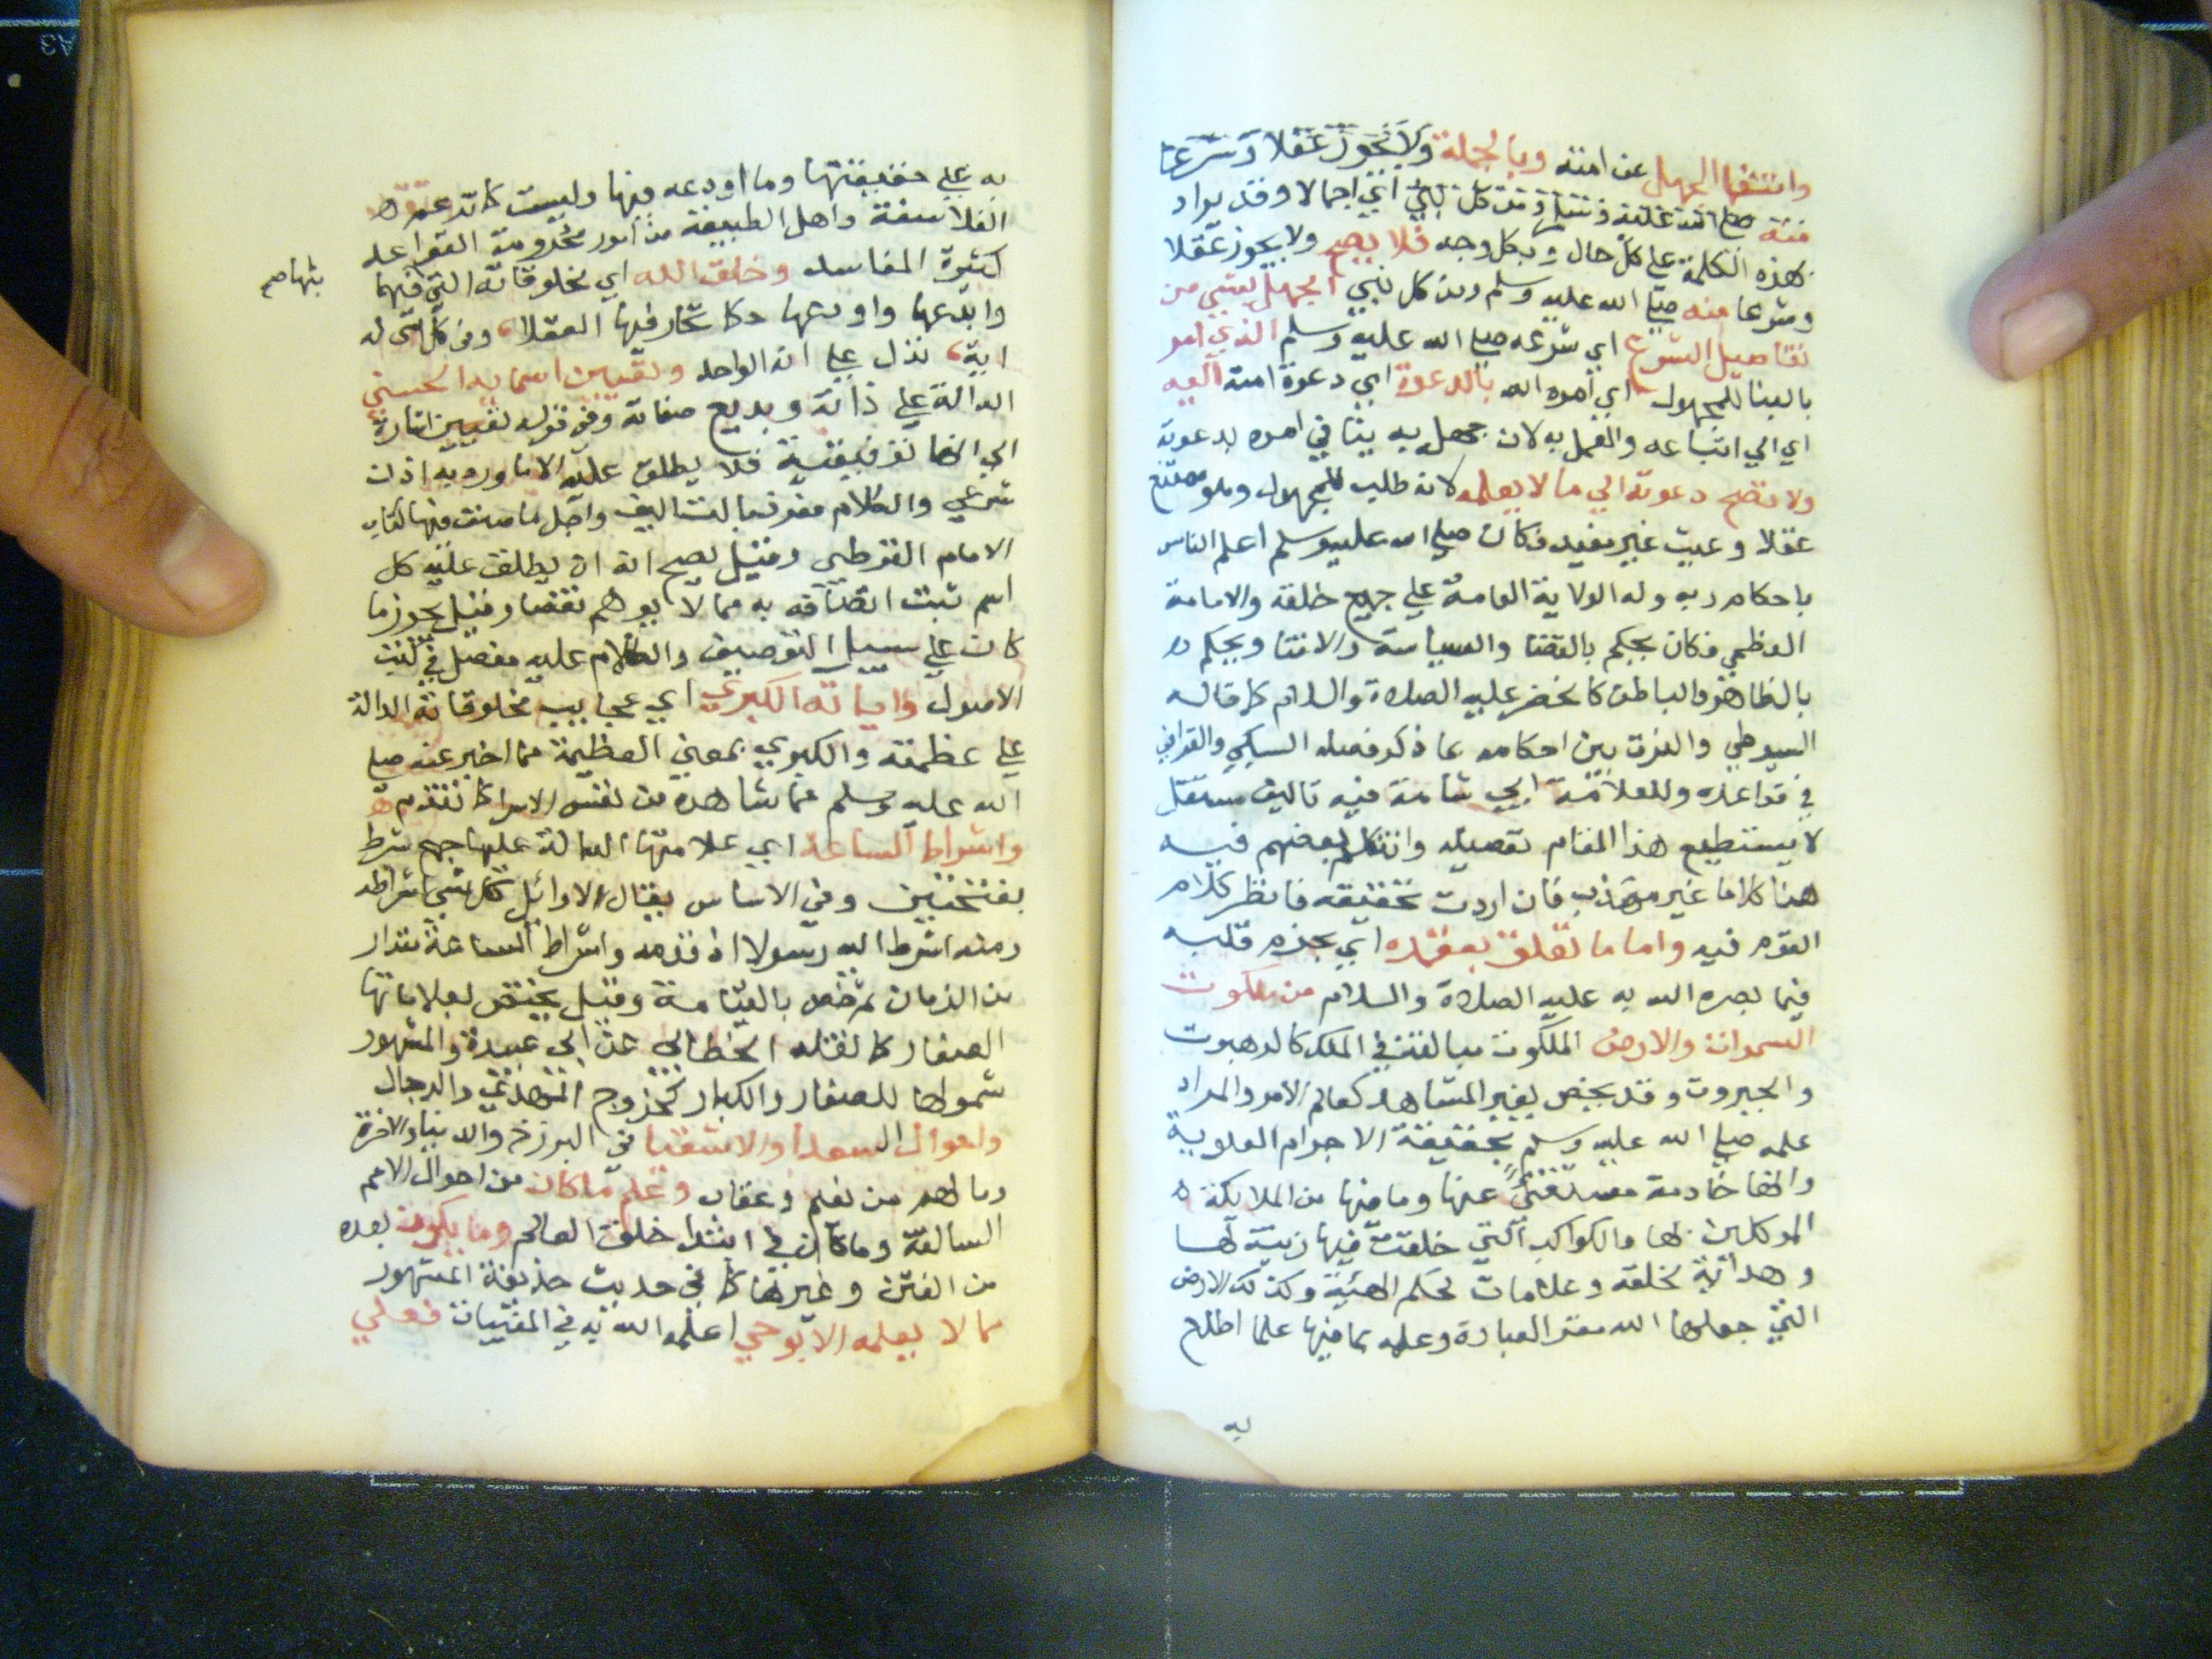 وانتفا الجهل عن امته وبالجملة ولا يجوز عقلا وشرعا
هذه الكلمة على كل حال وبكل وجه فلا يصح ولا يجوز عقلا
وشرعا منه صلى الله عليه وسلم ومن كل نبي الجهل بشي من
تفاصيل الشرع اي شرعه صلى الله عليه وسلم الذي امر
بالبنا للمجهول اي امره الله بالدعوة اي دعوة امته اليه
اي الي اتباعه والعمل به لان جهله به ينافي امره بدعوته
ولا تصح دعوته الي ما لا يعلمه لانه طلب للمجهول وهو ممتنع
عقلا وعبث غير مفيد فكان صلى الله عليه وسلم اعلم الناس
باحكام ربه وله الولاية العامة على جميع خلقه والامامة
العظمي فكان يحكم بالقضا والسياسة والافتا ويحكم
بالظاهر والباطن كالخضر عليه الصلاة والسلام كما قاله
السيوطي والفرق بين احكامه بما ذكر فصله السبكي والقرافي
في قواعده وللعلامة ابي شامة فيه تاليف مستقل
لا يستطيع هذا المقام تفصيله وان تكلم بعضهم فيه
هنا كلاما غير مهذب فان اردت تحقيقه فانظر كلام
القوم فيه واما ما تعلق بعقده اي بجزم قلبه
فيما بصره الله به عليه الصلاة والسلام من ملكوت
السموات والارض الملكوت مبالغة في الملك كالرهبوت
والجبروت وقد يخص بغير المشاهد كعالم الامر والمراد
علمه صلى الله عليه وسلم بحقيقة الاجرام العلوية
وانها خادمة عنها وما فيها من الملايكة
الموكلين بها والكواكب التي خلقت فيها زينة لها
وهداية لخلقه وعلامات لحكم الهيئة وكذلك الارض
التي جعلها الله مقر العبادة وعلمه بما فيها علما اطلع
به
به على حقيقتها وما اودعه فيها وليست كما تزعمه
الفلاسفة واهل الطبيعة من امور مخرومة القواعد
كثيرة المفاسد وخلق الله اي مخلوقاته التي
بثها صح
وابدعها واودعها حكما تحار فيها العقلا وفي كل شي له
اية تدل على انه الواحد وتعيين اسمايه الحسني
الدالة على ذاته وبديع صفاته وفي قوله تعيين اشارة
الي انها توقيفية فلا يطلق عليه الا ما ورد به اذن
شرعي والكلام مفرد بالتاليف واجل ما صنف فيها كتاب
الامام القرطبي وقيل يصح انه ان يطلق عليه كل
اسم ثبت اتصافه به مما لا يوهم نقصا وقيل يجوز ما
كان على سبيل التوصيف والكلام عليه مفصل في كتب
الاصول واياته الكبري اي عجايب مخلوقاته الدالة
على عظمته والكبري بمعني العظيمة مما اخبر عنه صلى
الله عليه وسلم مما شاهده من الاسرا كما تقدم
واشراط الساعة اي علامتها الدالة عليها جمع شرط
بفتحتين وفي الاساس يقال لاوائل كل شي اشراطه
ومنه اشرط الله رسولا اذا قدمه واشراط الساعة مقدار
من الزمان ثم خص بالقيامة وقيل يختص بعلاماتها
الصغار كما نقله الخطابي عن ابي عبيدة والمشهور
شمولها للصغار والكبار كخروج المهدي والدجال
واحوال السعدا والاشقيا في البرزخ والدنيا والاخرة
وما لهم من نعيم وعقاب وعلم ما كان من احوال الامم
السالفة وما كان في ابتدا خلق العالم وما يكون بعده
من الفتن وغيرها كما في حديث حذيفة المشهور
مما لا يعلمه الا بوحي اعلمه الله به في المغيبات فعلي